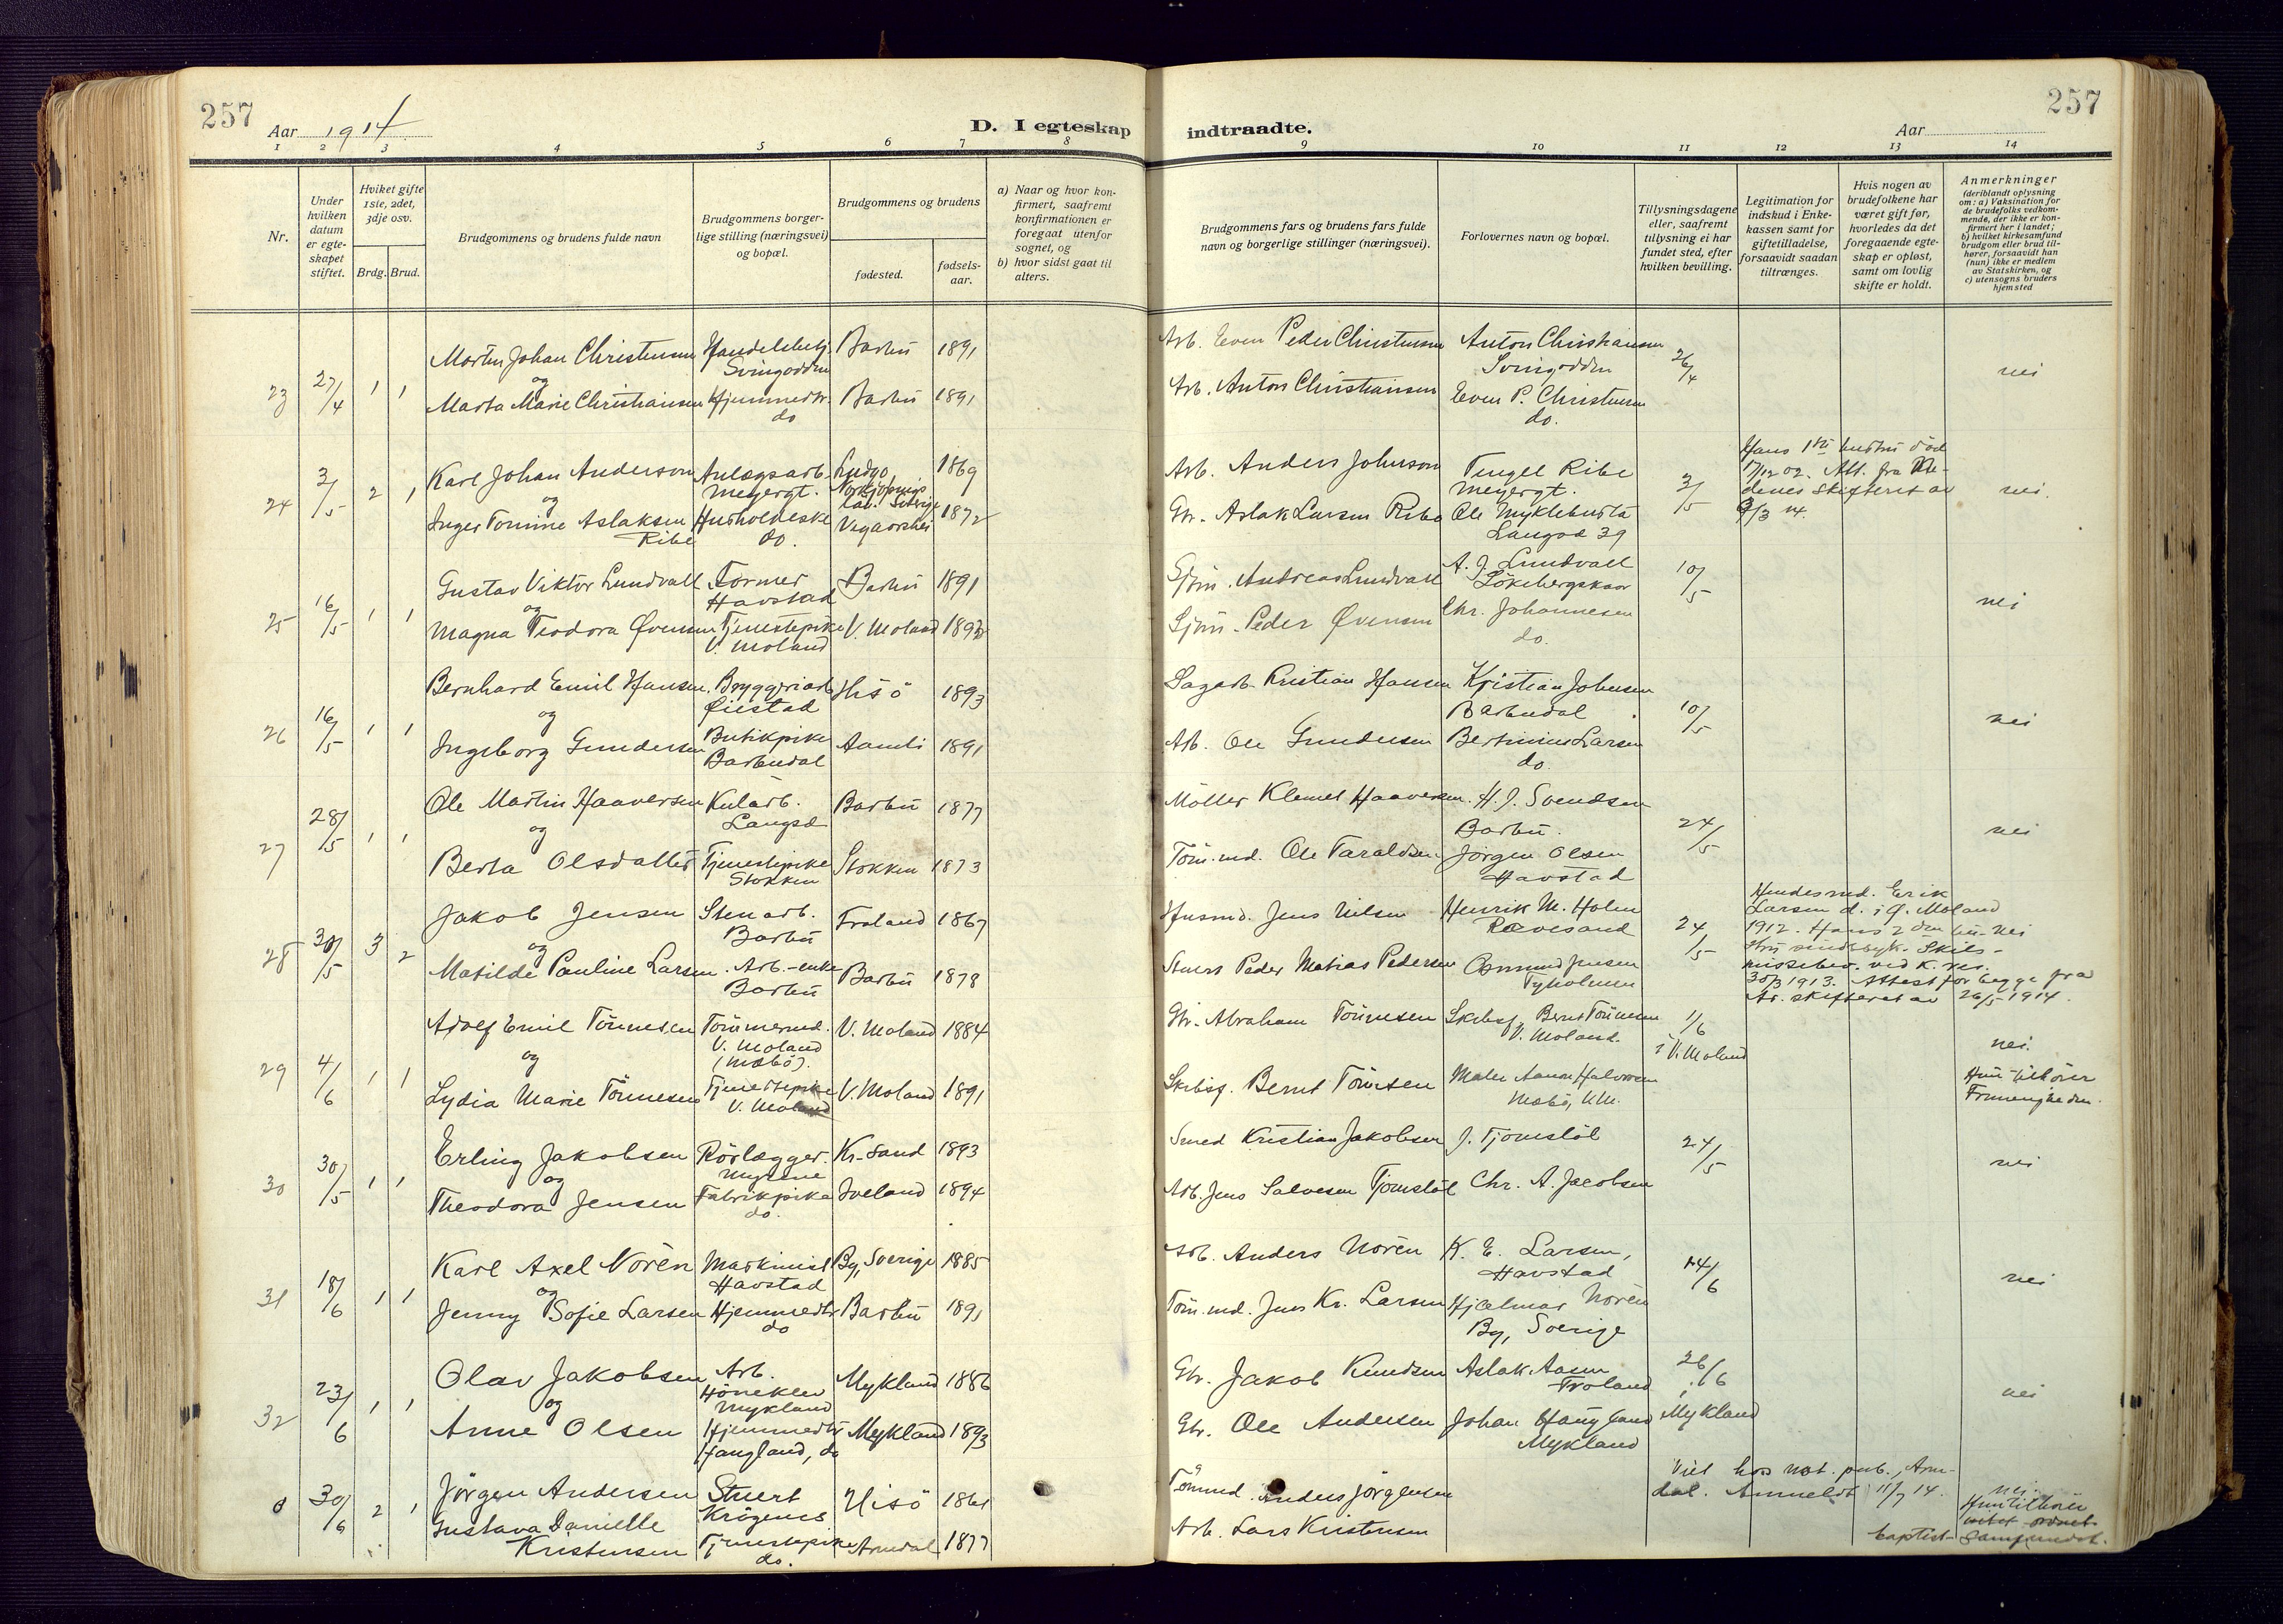 257
Aar 1914
D. I egteskap indtraadte.
Aar
257
1 2 3 4 5 6 7 8 9 10 11 12 13 14
Nr.
Under hvilken datum er egte-skapet stiftet.
Hviket gifte 1ste, 2det, 3dje osv.
Brdg. Brud.
Brudgommens og brudens fulde navn
Brudgommens borger-lige stilling (næringsvei) og bopæl.
Brudgommens og brudens
fødested.
fødsels-aar.
a) Naar og hvor kon-firmert, saafremt konfirmationen er foregaat utenfor sognet, og
b) hvor sidst gaat til alters.
Brudgommens fars og brudens fars fulde navn og borgerlige stillinger (næringsvei).
Forlovernes navn og bopæl.
Tillysningsdagene eller, saafremt tillysning ei har fundet sted, efter hvilken bevilling.
Legitimation for indskud i Enke-kassen samt for giftetilladelse, forsaavidt saadan tiltrænges.
Hvis nogen av brudefolkene har været gift før, hvorledes da det foregaaende egte-skap er opløst, samt om lovlig skifte er holdt.
Anmerkninger
(deriblandt oplysning om: a) Vaksination for de brudefolks vedkom-mende, der ikke er kon-firmert her i landet; b) hvilket kirkesamfund brudgom eller brud til-hører, forsaavidt han (hun) ikke er medlem av Statskirken, og c) utensogns bruders hjemsted
23 27/4 1 1
Morten Johan Christensen Handelsbetj. Svingodden Barbu 1891
og
Marta Marie Christiansen Hjemmedtr. do Barbu 1891
Arb. Even Peder Christensen Anton Christiansen Svingodden 26/4
Arb. Anton Christiansen Even P. Christensen do. nei
24 3/5 2 1
Karl Johan Anderson Anlægsarb. Meyergt. 1869
og
Inger Tomine Aslaksen Ribe Husholderske do. Vegaarshei 1872
Arb. Anders Johnson Tengel Ribe Meyergt. 3/5
Gbr. Aslak Larsen Ribe Ole Myklebustad Langsæ 39
Hans 1ste hustru död
17/12 02. Att. fra Ne-
denes skifteret av
9/3 14. nei.
25 16/5 1 1
Gustav Viktor Lundvall Former Havstad Barbu 1891
og
Magna Teodora Øvensen Tjenestepike V. Moland V. Moland 1893
Sjöm. Andreas Lundvall A. J. Lundvall Lökebergskaar 10/5
Sjöm. Peder Øvensen Chr. Johannesen do. nei
26 16/5 1 1
Bernhard Emil Hansen Bryggeriarb. Øiestad Hisö 1893
og
Ingeborg Gundersen Butikpike Barbudal Aamli 1891
Sagarb. Kristian Hansen Kristian Johnsen Barbudal 10/5
Arb. Ole Gundersen Bertinius Larsen do. nei
27 28/5 1 1
Ole Martin Haaversen Kularb. Langsæ Barbu 1877
og
Berta Olsdatter Tjenestepike Stokken Stokken 1873
Möller Klemet Haaversen H. J. Svendsen Barbu. 24/5
Töm.md. Ole Taraldsen Jörgen Olsen Havstad nei
28 30/5 3 2
Jakob Jensen Stenarb. Barbu Froland 1867
og
Matilde Pauline Larsen Arb.-enke Barbu Barbu 1878
Husmd. Jens Nilsen Henrik M. Holm Rævesand 24/5
Stuers Peder Matias Pedersen Osmund Jensen Tyholmen
Hendes md. Erik
Larsen d. i Ø. Moland
1912. Hans 2den hu- nei
stru sindssyk. Skils-
missebev. ved K. res.
30/3 1913. Attest for begge fra
Ar. skifteret av 26/5 1914.
29 4/6 1 1
Adolf Emil Tönnesen Tömmermd. V. Moland (Mæbö). V. Moland 1884
og
Lydia Marie Tönnesen Tjenestepike V. Moland V. Moland 1891
Gbr. Abraham Tönnesen Skibsf. Bernt Tönnesen V. Moland. 1/6 i V. Moland
Skibsf. Bernt Tönnesen Maler Aanon Halvorsen Mæbö, V.M.
nei.
Hun tilhörer
Frimenigheden.
30 30/5 1 1
Erling Jakobsen Rörlægger. Myrene Kr.sand 1893
og
Theodora Jensen Fabrikpike do. Iveland 1894
Smed Kristian Jakobsen J. Tjomstöl 24/5
Arb. Jens Salvesen Tjomstöl Chr. A. Jacobsen nei
31 18/6 1 1
Karl Axel Norén Maskinist Havstad By, Sverige 1885
og
Jenny Sofie Larsen Hjemmedtr do Barbu 1891
Arb. Anders Norén K. E. Larsen, Havstad 14/6
Töm.md. Jens Kr. Larsen Hjalmar Norén By, Sverige nei
32 23/6 1 1
Olav Jakobsen Arb. Höneklev Mykland Mykland 1886
og
Anne Olsen Hjemmedtr Haugland, do Mykland 1893
Gbr. Jakob Knudsen Aslak Aasen Froland 26/6 i Mykland
Gbr. Ole Andersen Johan Haugland Mykland nei
30/6 2 1
Jörgen Andersen Stuert Krögenes Hisö 1861
Gustava Danielle Kristensen Tjenestepike do. Arendal 1877
Tömmd. Anders Jörgensen
Arb. Lars Kristensen
Viet hos not. pub., Aren-
dal. Anmeldt 11/7 14.
nei.
Hun tilhörer
baptist- samfundet.